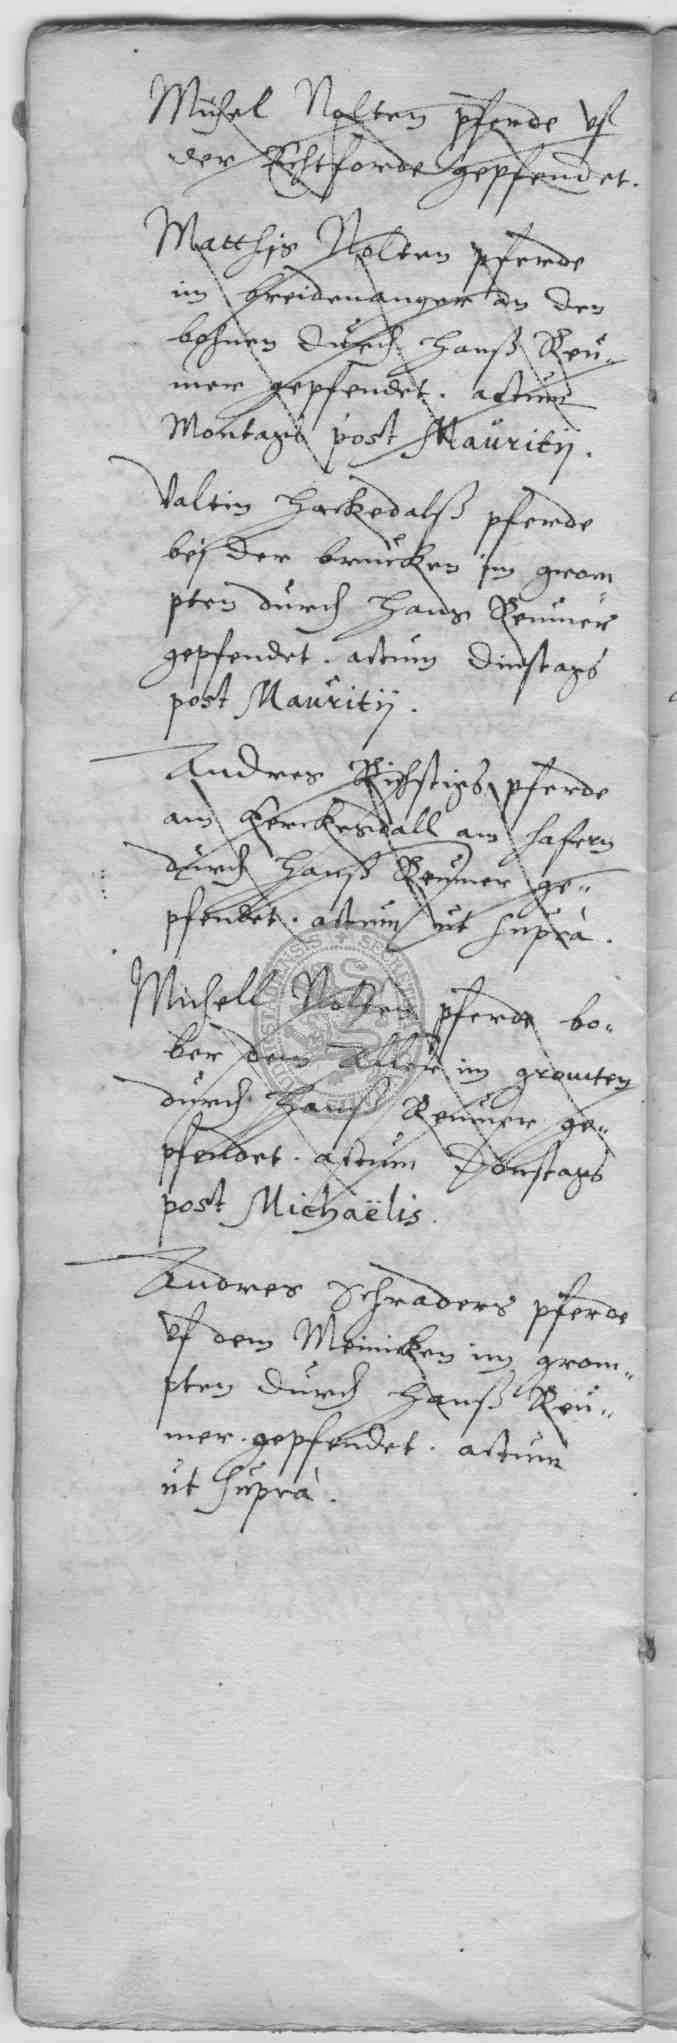 Michel Nolten pferde uf
der Echtforde gepfendet.
Matthis Nolten pferde
im breidenanger an den
bohnen durch Hanß Reu„
mer gepfendet. actum
Montags post Mauritij.
Valtin Hackedalß pferde
bej der brucken im grom
pten durch Hans Reumer
gepfendet. actum Dinstags
post Mauritij.
Andres pferde
am am hafern
durch Hanß Reumer ge„
pfendet. actum ut suprà.
Michell Nolten pferde bo„
ber dem aller im gromten
durch Hanß Reumer ge„
pfendet. actum Donstags
post Michaëlis.
Andres Schraders pferde
uf dem Meinicken im grom„
pten durch Hanß Reu„
mer gepfendet. actum
ut suprà.